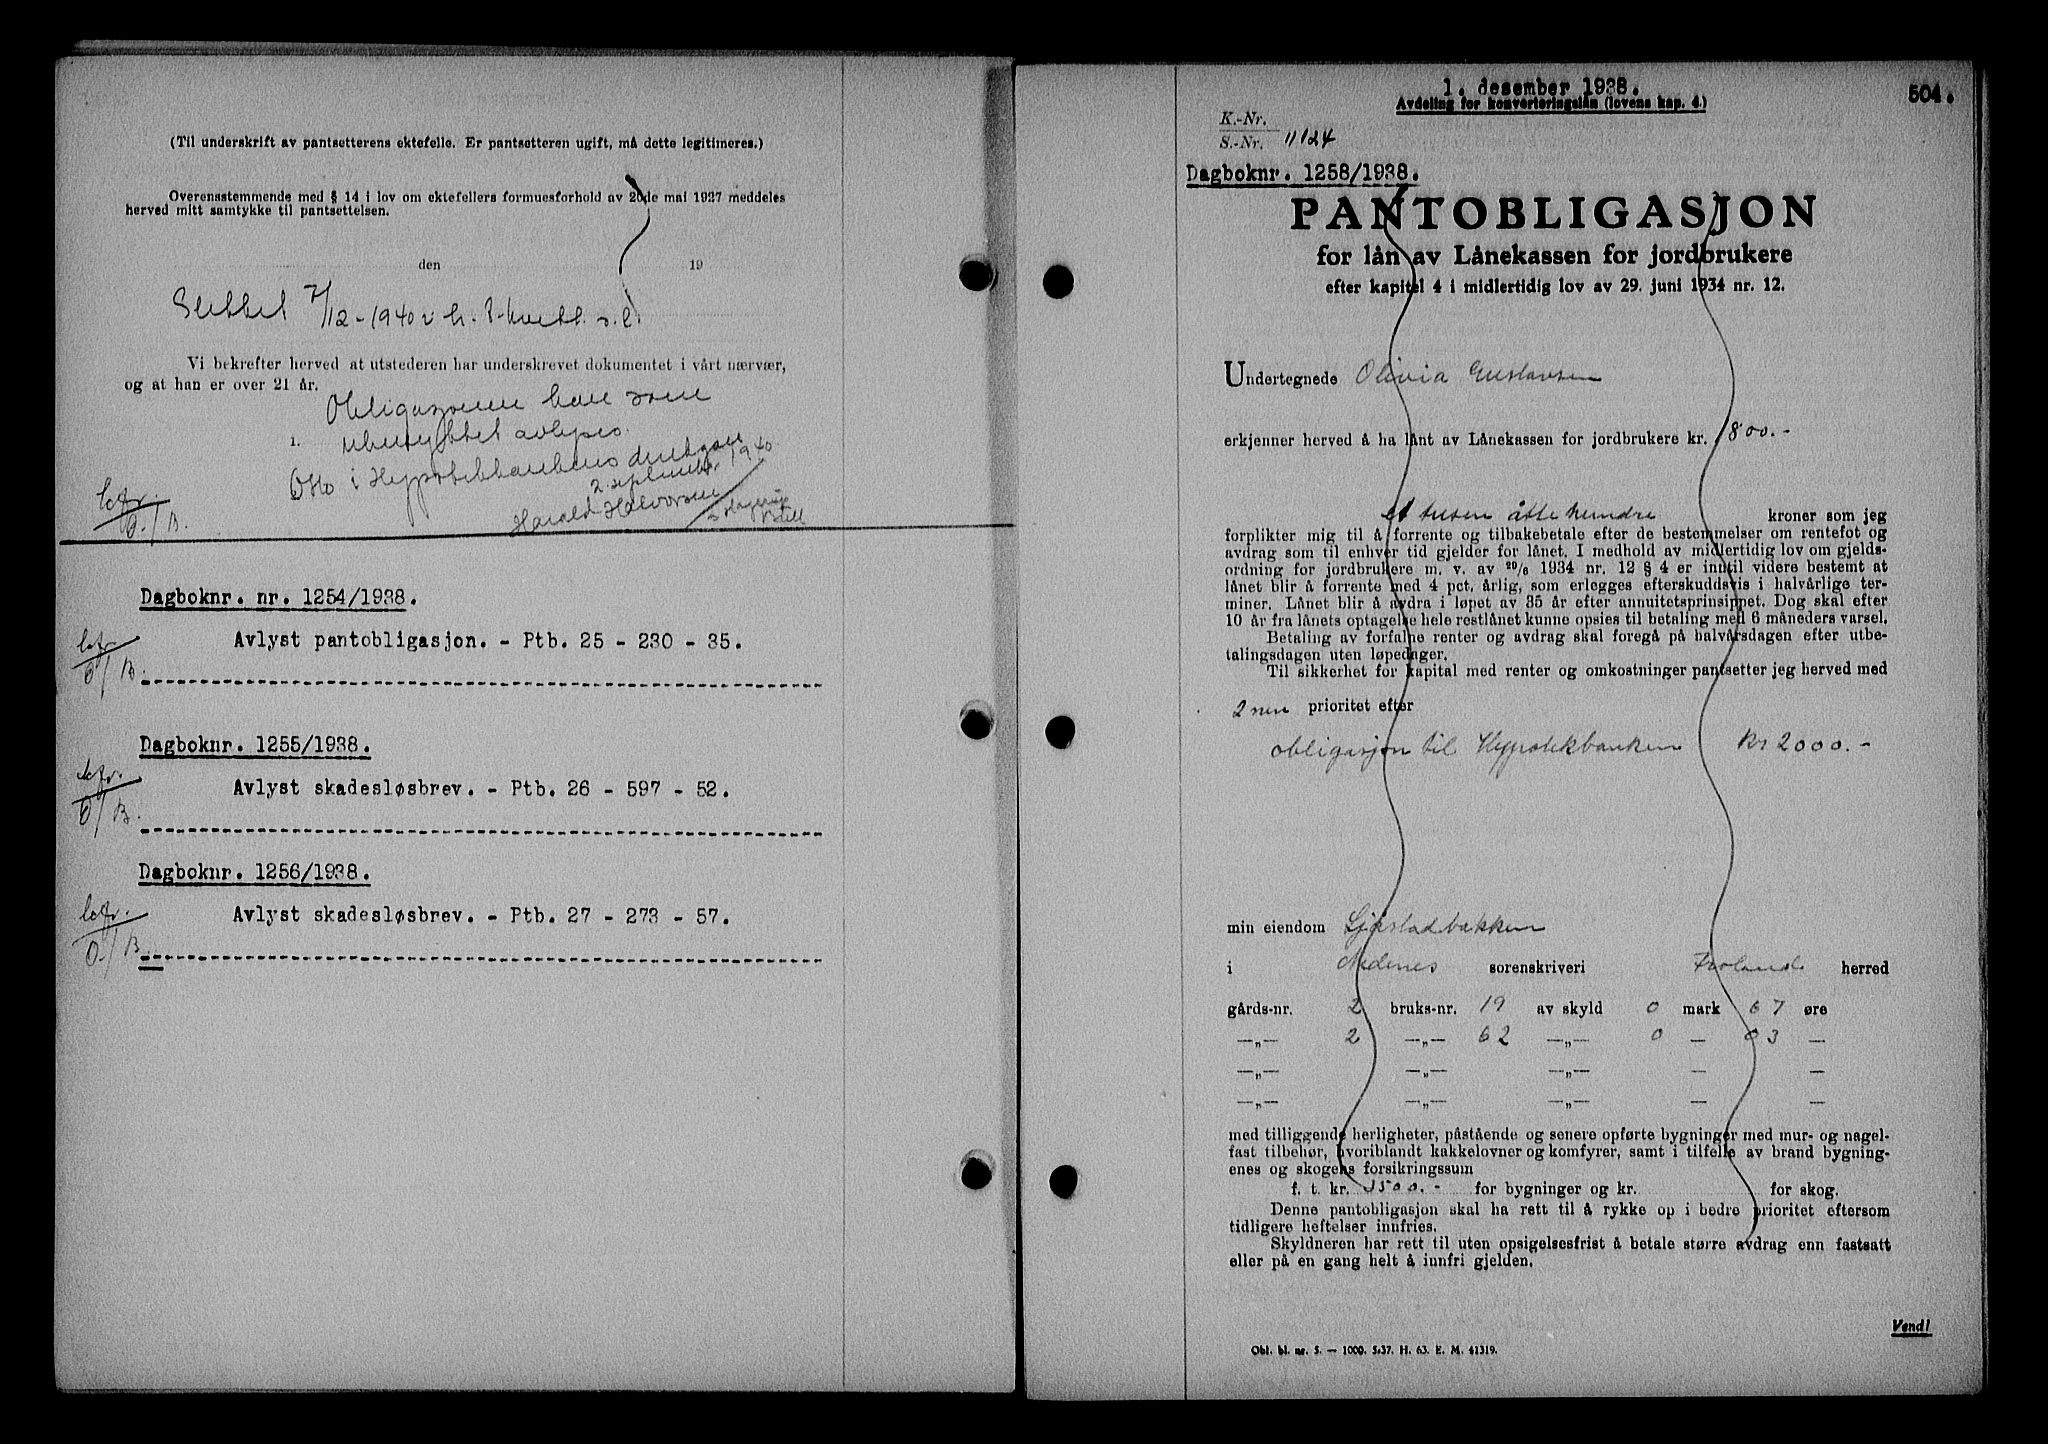 (Til underskrift av pantsetterens ektefelle. Er pantsetteren ugift, må dette legitimeres.)
Overensstemmende med § 14 i lov om ektefellers formuesforhold av 20de mai 1927 meddeles
herved mitt samtykke til pantsettelsen.
den 19
Slettet 7/12-1940 v. h.
Vi bekrefter herved at utstederen har underskrevet dokumentet i vårt nærvær,
og at han er over 21 år.
Obligasjonen kan som
1. ubenyttet avlyses.
Oslo i Hypotekbankens direksjon
2. september 1940
Harald Halvorsen
Dagboknr. nr. 1254/1938.
Avlyst pantobligasjon. - Ptb. 25 - 230 - 35.
Dagboknr. 1255/1938.
Avlyst skadesløsbrev. - Ptb. 26 - 597 - 52.
Dagboknr. 1256/1938.
Avlyst skadesløsbrev. - Ptb. 27 - 273 - 57.
1. desember 1938.
504.
Avdeling for konverteringslån (lovens kap. 4.)
K.-Nr.
S.-Nr. 11124
Dagboknr. 1258/1938.
PANTOBLIGASJON
for lån av Lånekassen for jordbrukere
efter kapitel 4 i midlertidig lov av 29. juni 1934 nr. 12.
Undertegnede Olivia Gustavsen
erkjenner herved å ha lånt av Lånekassen for jordbrukere kr. 1800.-
et tusen åtte hundre kroner som jeg
forplikter mig til å forrente og tilbakebetale efter de bestemmelser om rentefot og
avdrag som til enhver tid gjelder for lånet. I medhold av midlertidig lov om gjelds-
ordning for jordbrukere m. v. av 29/6 1934 nr. 12 § 4 er inntil videre bestemt at
lånet blir å forrente med 4 pct. årlig, som erlegges efterskuddsvis i halvårlige ter-
miner. Lånet blir å avdra i løpet av 35 år efter annuitetsprinsippet. Dog skal efter
10 år fra lånets optagelse hele restlånet kunne opsies til betaling med 6 måneders varsel.
Betaling av forfalne renter og avdrag skal foregå på halvårsdagen efter utbe-
talingsdagen uten løpedager.
Til sikkerhet for kapital med renter og omkostninger pantsetter jeg herved med
2nen prioritet efter
obligasjon til Hypotekbanken Kr 2000.-
min eiendom Ljøstadbakken
i Nedenes sorenskriveri Froland herred
gårds-nr. 2 bruks-nr. 19 av skyld 0 mark 67 øre
—„— 2 —„— 62 —„— 0 — 03 —
—„— —„— —„— — —
—„— —„— —„— — —
med tilliggende herligheter, påstående og senere opførte bygninger med mur- og nagel-
fast tilbehør, hvoriblandt kakkelovner og komfyrer, samt i tilfelle av brand bygning-
enes og skogens forsikringssum
f. t. kr. 3500.- for bygninger og kr. for skog.
Denne pantobligasjon skal ha rett til å rykke op i bedre prioritet eftersom
tidligere heftelser innfries.
Skyldneren har rett til uten opsigelsesfrist å betale større avdrag enn fastsatt
eller på en gang helt å innfri gjelden.
Vend!
Obl. bl. nr. 5. — 1000. 5-37. H. 63. E. M. 41319.